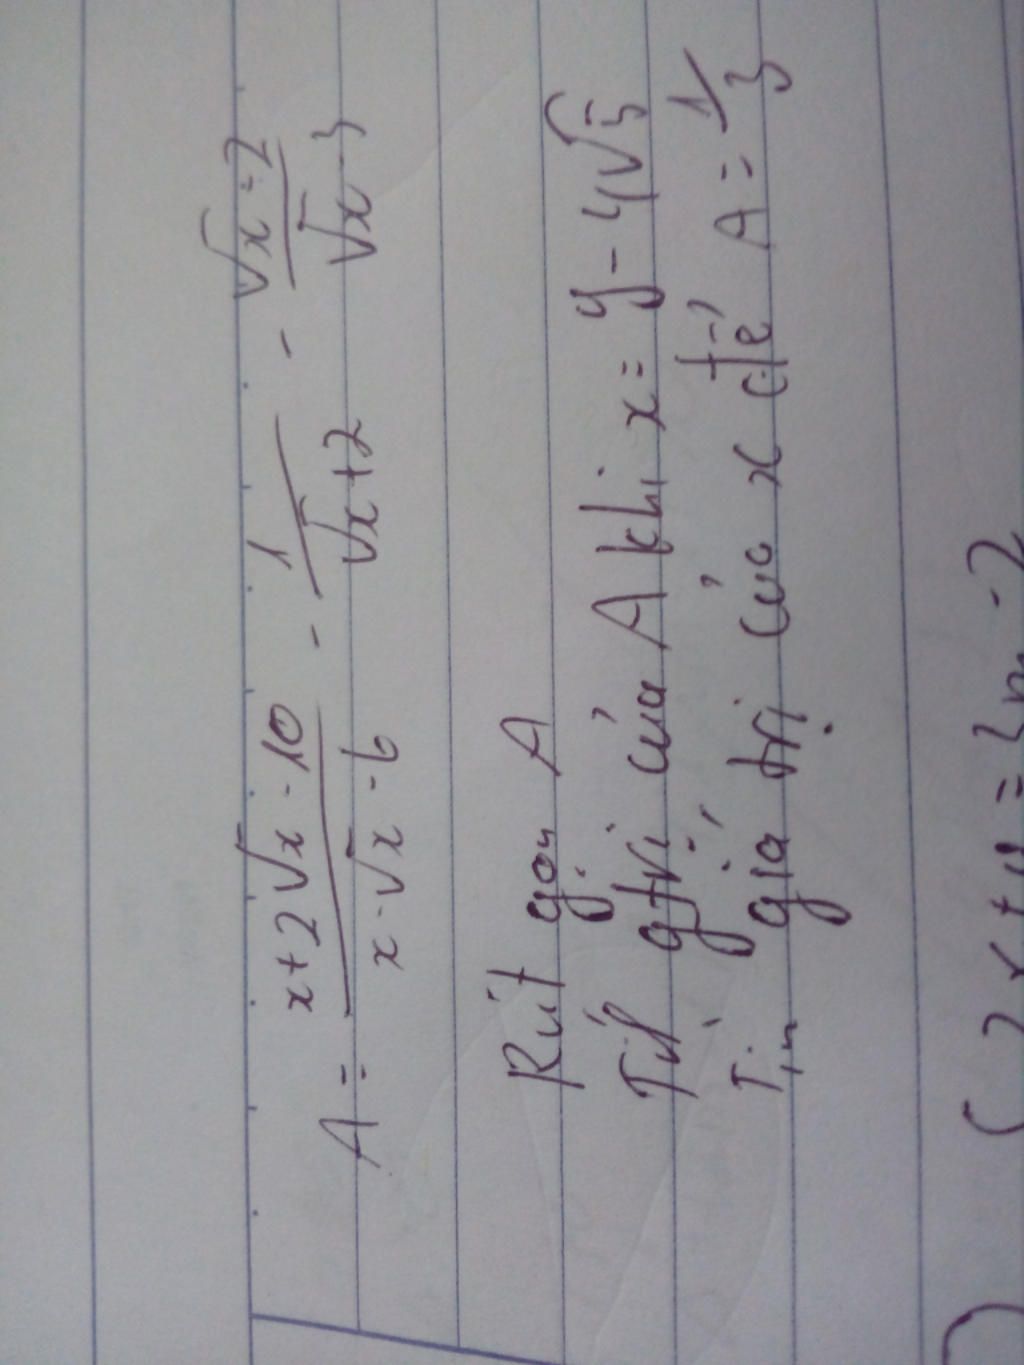 A = x + 2√x - 10 / x - √x - 6 - 1 / √x + 2 - √x - 2 / √x - 3
Rút gọn A
gtrị của A khi x = 9 - 4√5
Tìm giá trị của x để A = 1/3
2x + y = 3m - 2